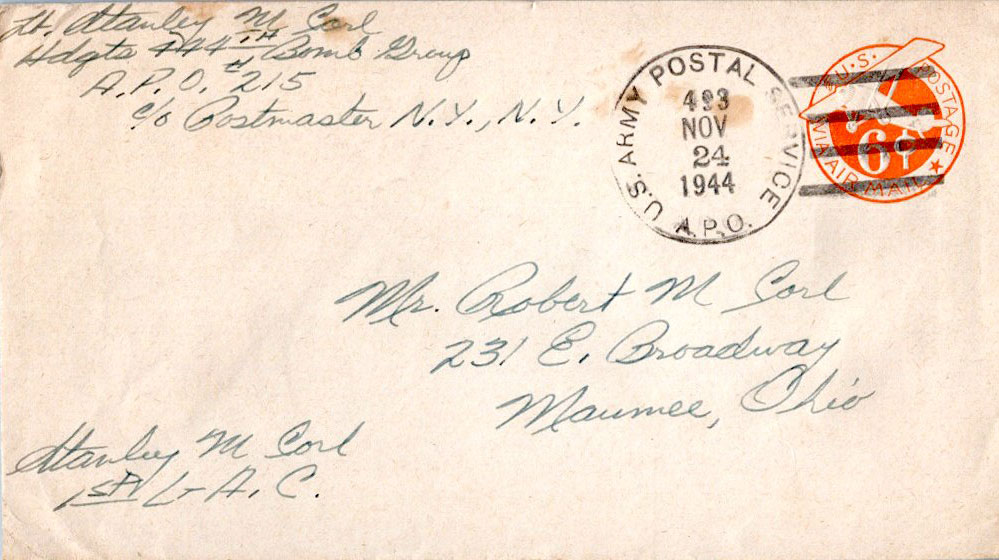 Lt. Stanley M Corl
Hdqts 444TH Bomb Group
A.P.O. # 215
c/o Postmaster N.Y., N.Y.
U.S. ARMY POSTAL SERVICE
493
NOV
24
1944
A.P.O.
U.S. POSTAGE
6¢
VIA AIR MAIL
Mr. Robert M Corl
231 E. Broadway
Maumee, Ohio
Stanley M Corl
1st Lt A.C.